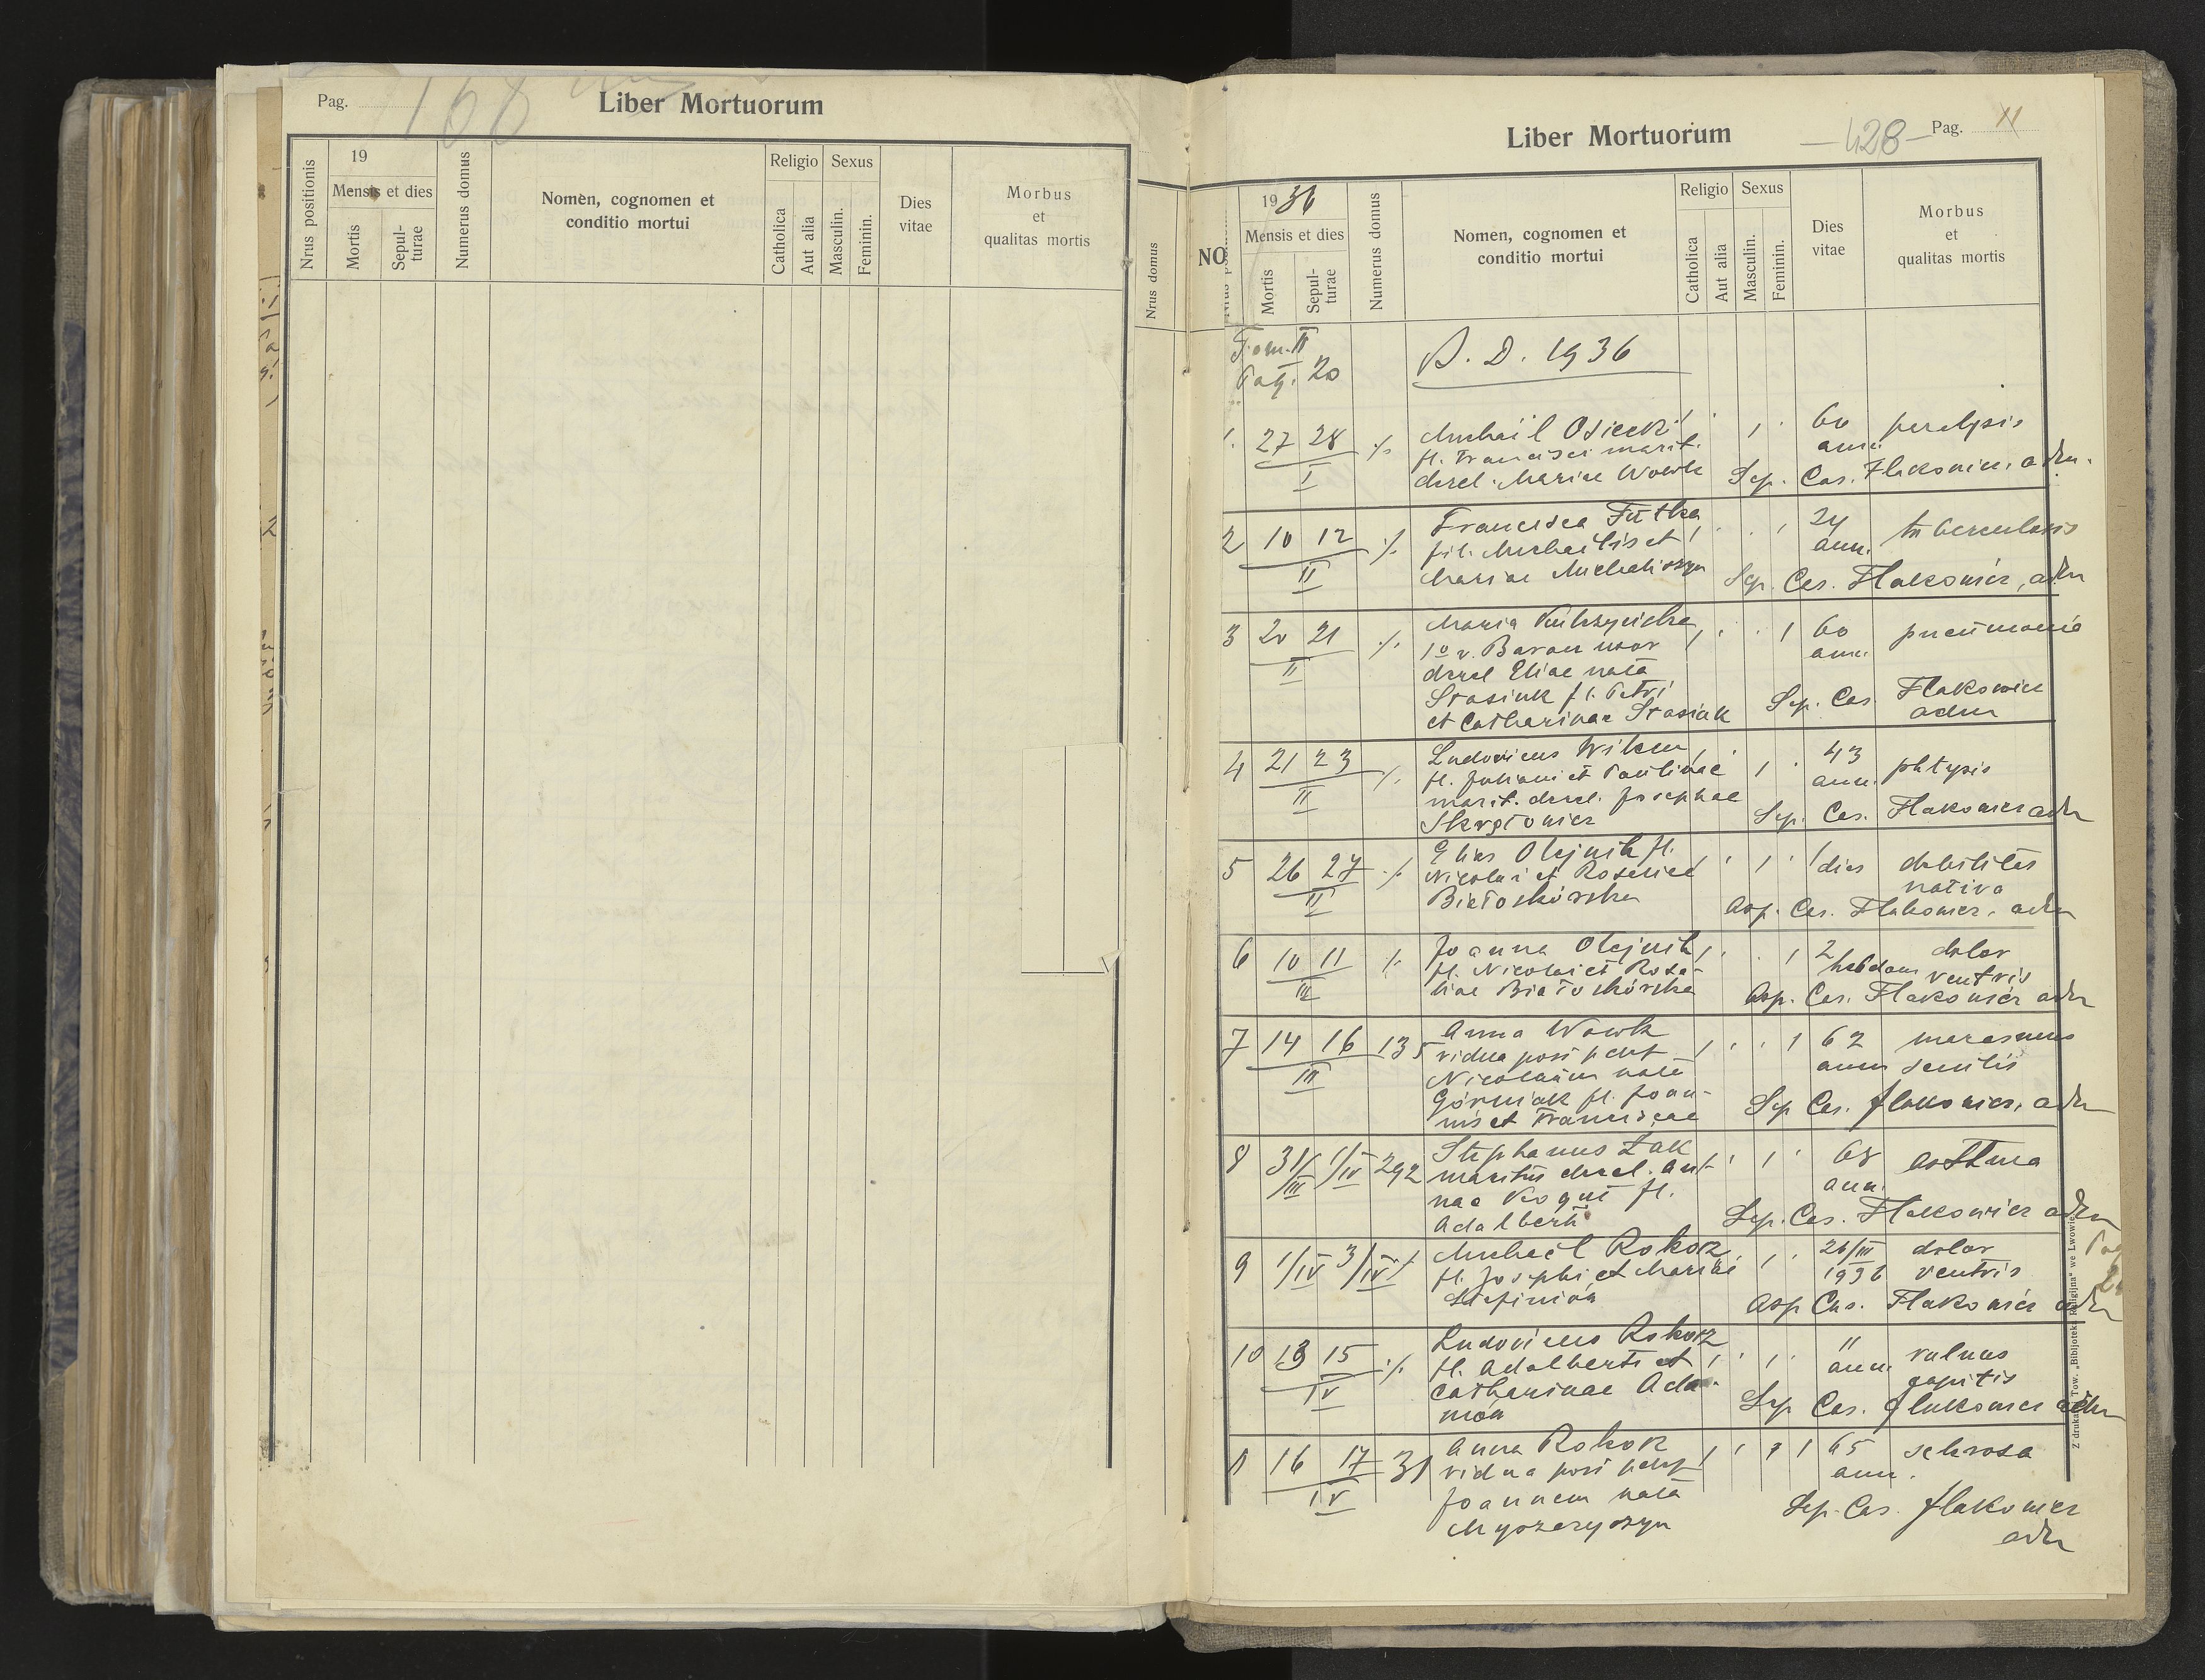 Pag. 168
Liber Mortuorum
Nrus positionis
19
Mensis et dies
Mortis
Sepulturae
Numerus domus
Nomen, cognomen et
conditio mortui
Religio
Catholica
Aut alia
Sexus
Masculin.
Feminin.
Dies
vitae
Morbus
et
qualitas mortis
Nrus domus
NO
Liber Mortuorum
- 428 - Pag. 11
1936
Mensis et dies
Mortis
Sepulturae
Numerus domus
Nomen, cognomen et
conditio mortui
Religio
Catholica
Aut alia
Sexus
Masculin.
Feminin.
Dies
vitae
Morbus
et
qualitas mortis
Tom. II
Pag. 20
A. D. 1936
1. 27 28 ./. Michail Osiecki 1 60 paralysis
I fl. Francisci marit. ann.
derel. Mariae Wowk Sep. Cas. Flakowicz, adm.
2 10 12 ./. Francisca Futka 1 24 tuberculosis
II fil. Michaelis et ann.
Mariae Michaliszyn Sep. Cas. Flakowicz, adm
3 20 21 ./. Maria 1 60 pneumonia
II 1º v. Baran uxor ann.
derel Eliae nata
Stasiuk fl. Petri Sep. Cas. Flakowicz
et Catharinae Stasiak adm
4 21 23 ./. Ludovicus 1 43 phtysis
II fl. Juliani et Paulinae ann.
marit. derel. Josephae
Sep. Cas. Flakowicz adm
5 26 27 ./. Elias Olejnik fl. 1 1 dies debilitas
II Nicolai et Rosaliae nativa
Białoskórska Asp. Cas. Flakowicz, adm
6 10 11 ./. Joanna Olejnik 1 2 dolor
III fl. Nicolai et Rosa- hebdom ventris
liae Białoskórska Asp. Cas. Flakowicz adm
7 14 16 135 Anna Wowk 1 62 marasmus
III vidua post pdft ann senilis
Nicolaum nata
Górniak fl. Joan-
nis et Franciscae Sep Cas. Flakowicz, adm
8 31/III 1/IV 292 Stephanus Żak 1 68 asthma
maritus derel. An- ann.
nae fl.
Adalberti Sep. Cas. Flakowicz adm
9 1/IV 3/IV ./. Michael Rokosz 1 26/III dolor
fl. Josephi et Mariae 1936 ventris
Asp Cas. Flakowicz adm
10 13 15 ./. Ludovicus Rokosz 1 11 vulnus
IV fl. Adalberti et ann. capitis
Catharinae Ada-
món Sep Cas. Flakowicz adm
11 16 17 31 Anna Rokosz 1 65 sclerosa
IV vidua post pdft ann.
Joannem nata Sep. Cas. Flakowicz
adm
Z drukarni Tow. „Bibljoteka Religijna" we Lwowie